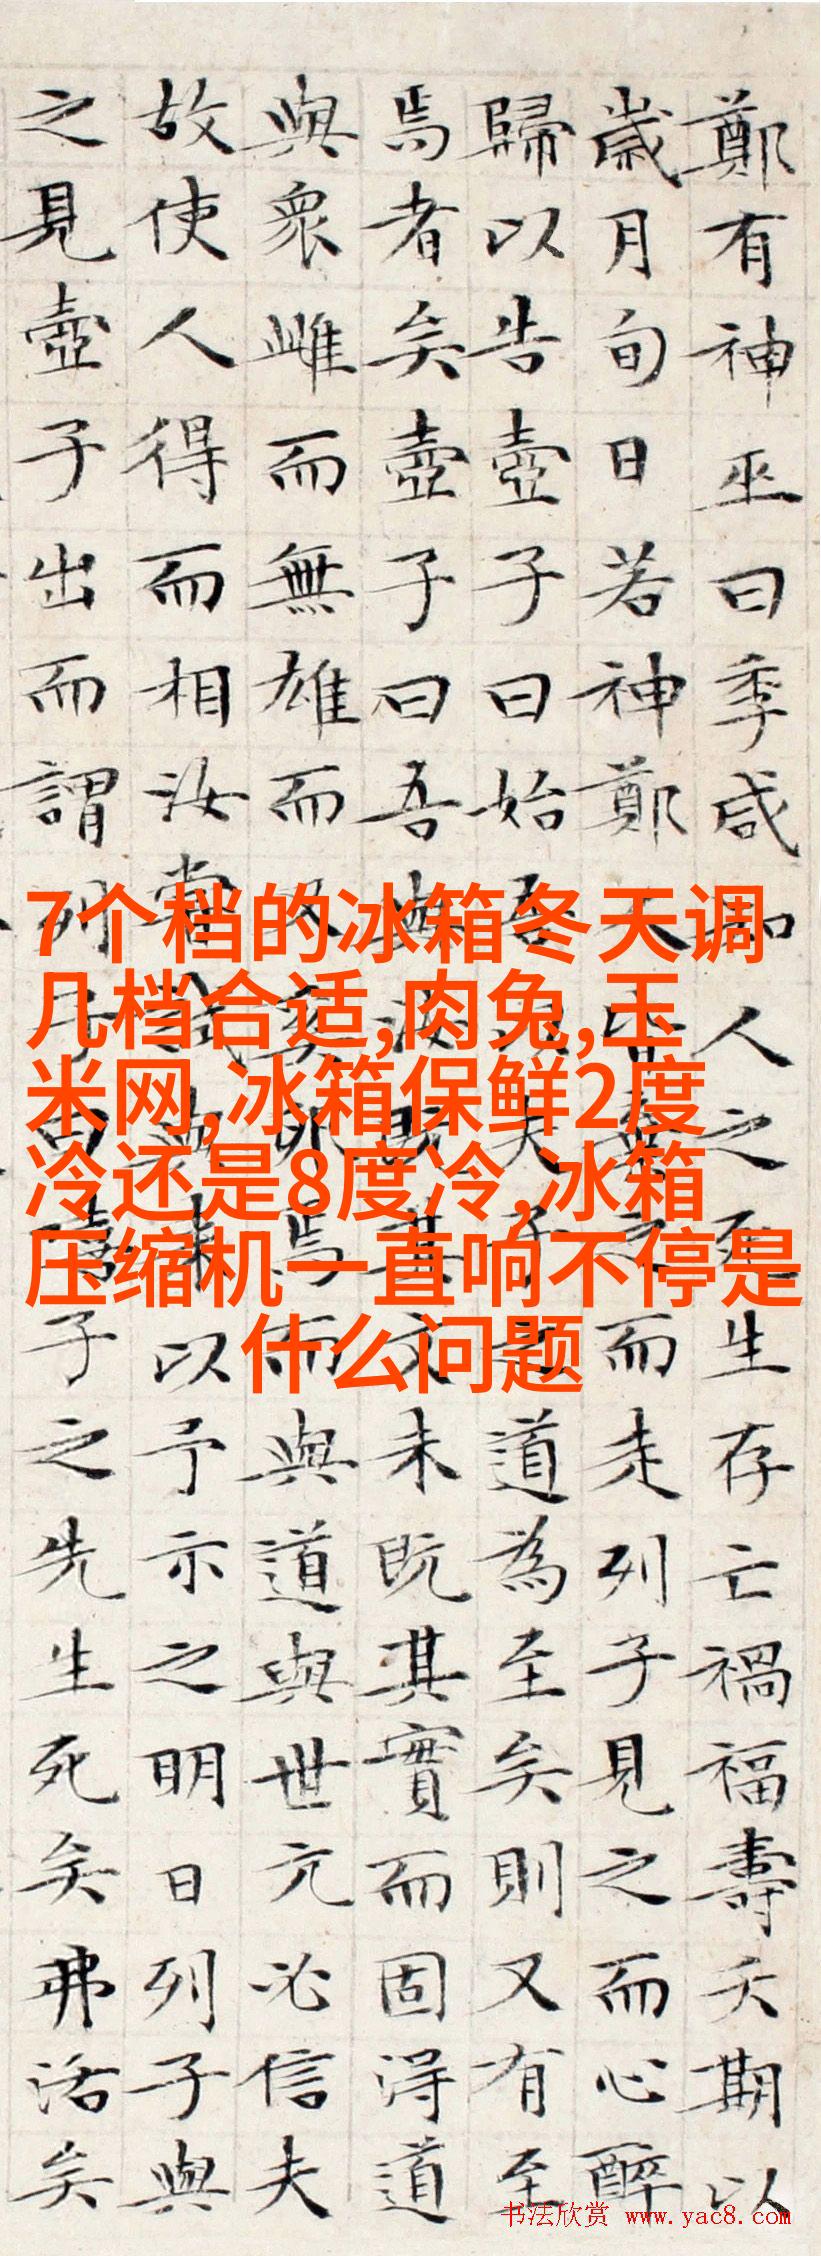 鄭有神巫曰季咸知人之死生存亡禍福壽夭期以
歲月旬日若神鄭人皆棄之而走列子見之而心醉
歸以告壺子曰始吾以夫子之道為至矣則又有至
焉者矣壺子曰吾與汝既其文未既其實而固得道
與衆雌而無雄而又奚卵焉而與道與世亢必信夫
故使人得而相汝嘗試與來以予示之明日列子與
之見壺子出而謂列子曰嘻子之先生死矣弗活矣
7个档的冰箱冬天调
几档合适,肉兔,玉
米网,冰箱保鲜2度
冷还是8度冷,冰箱
压缩机一直响不停是
什么问题
书法欣赏 www.yac8.com